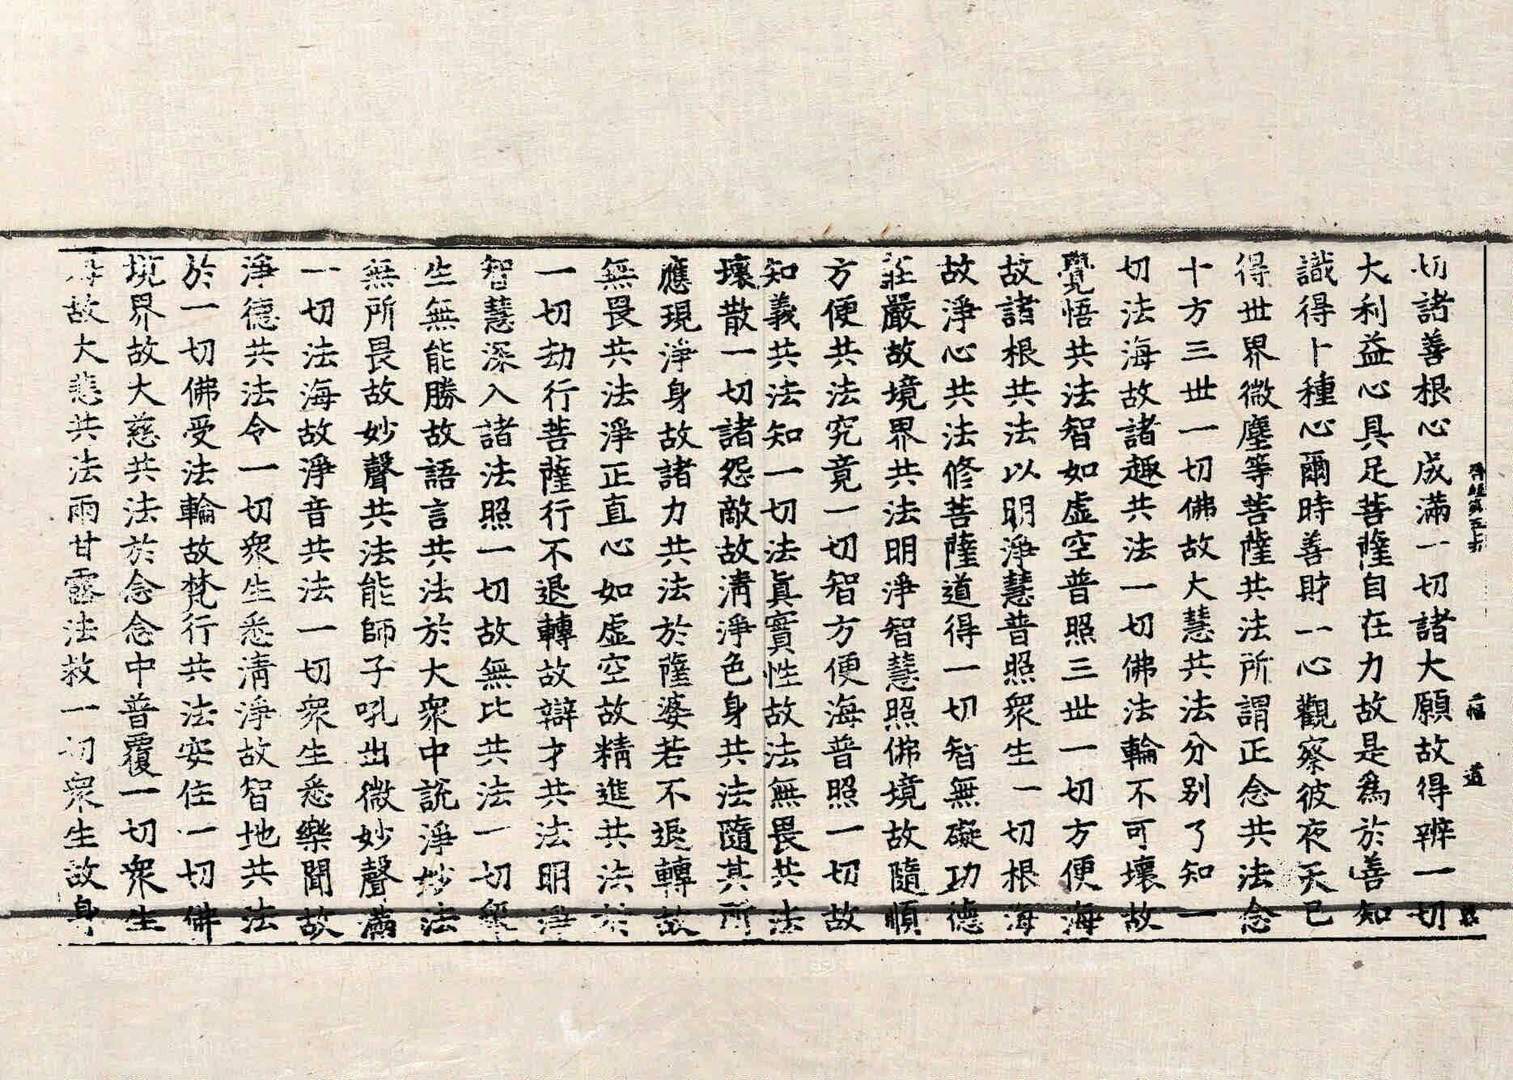 切諸善根心成滿一切諸大願故得辨一切
大利益心具足菩薩自在力故是爲於善知
識得十種心爾時善財一心觀察彼夜天已
得世界微塵等菩薩共法所謂正念共法念
十方三世一切佛故大慧共法分別了知一
切法海故諸趣共法一切佛法輪不可壞故
覺悟共法智如虛空普照三世一切方便海
故諸根共法以明淨慧普照衆生一切根海
故淨心共法修菩薩道得一切智無礙功德
莊嚴故境界共法明淨智慧照佛境故隨順
方便共法究竟一切智方便海普照一切故
知義共法知一切法眞實性故法無畏共法
壞散一切諸怨敵故淸淨色身共法隨其所
應現淨身故諸力共法於薩婆若不退轉故
無畏共法淨正直心如虛空故精進共法於
一切劫行菩薩行不退轉故辯才共法明淨
智慧深入諸法照一切故無比共法一切衆
生無能勝故語言共法於大衆中說淨妙法
無所畏故妙聲共法能師子吼出微妙聲滿
一切法海故淨音共法一切衆生悉樂聞故
淨德共法令一切衆生悉淸淨故智地共法
於一切佛受法輪故梵行共法安住一切佛
境界故大慈共法於念念中普覆一切衆生
海故大悲共法雨甘露法救一切衆生故身